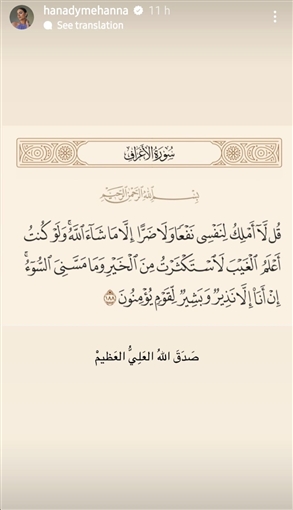 hanadymehanna 11 h
See translation
سُورَةُ الأَعْرَافِ
بِسْمِ اللَّهِ الرَّحْمَٰنِ الرَّحِيمِ
قُل لَّآ أَمْلِكُ لِنَفْسِى نَفْعًا وَلَا ضَرًّا إِلَّا مَا شَآءَ ٱللَّهُ ۚ وَلَوْ كُنتُ
أَعْلَمُ ٱلْغَيْبَ لَٱسْتَكْثَرْتُ مِنَ ٱلْخَيْرِ وَمَا مَسَّنِىَ ٱلسُّوٓءُ ۚ
إِنْ أَنَا۠ إِلَّا نَذِيرٌ وَبَشِيرٌ لِّقَوْمٍ يُؤْمِنُونَ ١٨٨
صَدَقَ اللهُ العَلِيُّ العَظِيمْ